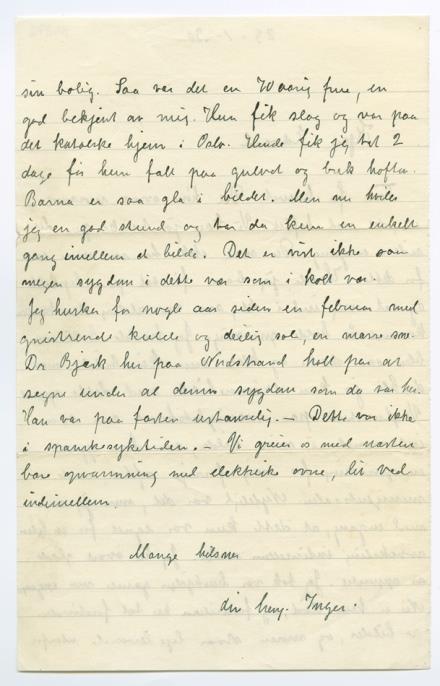 sin bolig. Saa var det en 70 aarig frue, en
god bekjent av mig. Hun fik slag og var paa
det katolske hjem i Oslo. Hende fik jeg tat 2
dage før hun falt paa gulvet og brak hoften.
Barna er saa gla i bildet. Men nu hviler
jeg en god stund og tar da kun en enkelt
gang imellem et bilde. Det er vist ikke saa
megen sygdom i dette vær som i koldt vær.
Jeg husker for nogle aar siden en februar med
gnistrende kulde og deilig sol, en masse sne.
Dr Bjørk her paa Nordstrand holt paa at
segne under al denne sygdom som da var her.
Han var paa farten ustanselig. — Dette var ikke
i spanskesyketiden. — Vi greier os med næsten
bare opvarmning med elektriske ovne, litt ved
indimellem.
Mange hilsner
din heng. Inger.